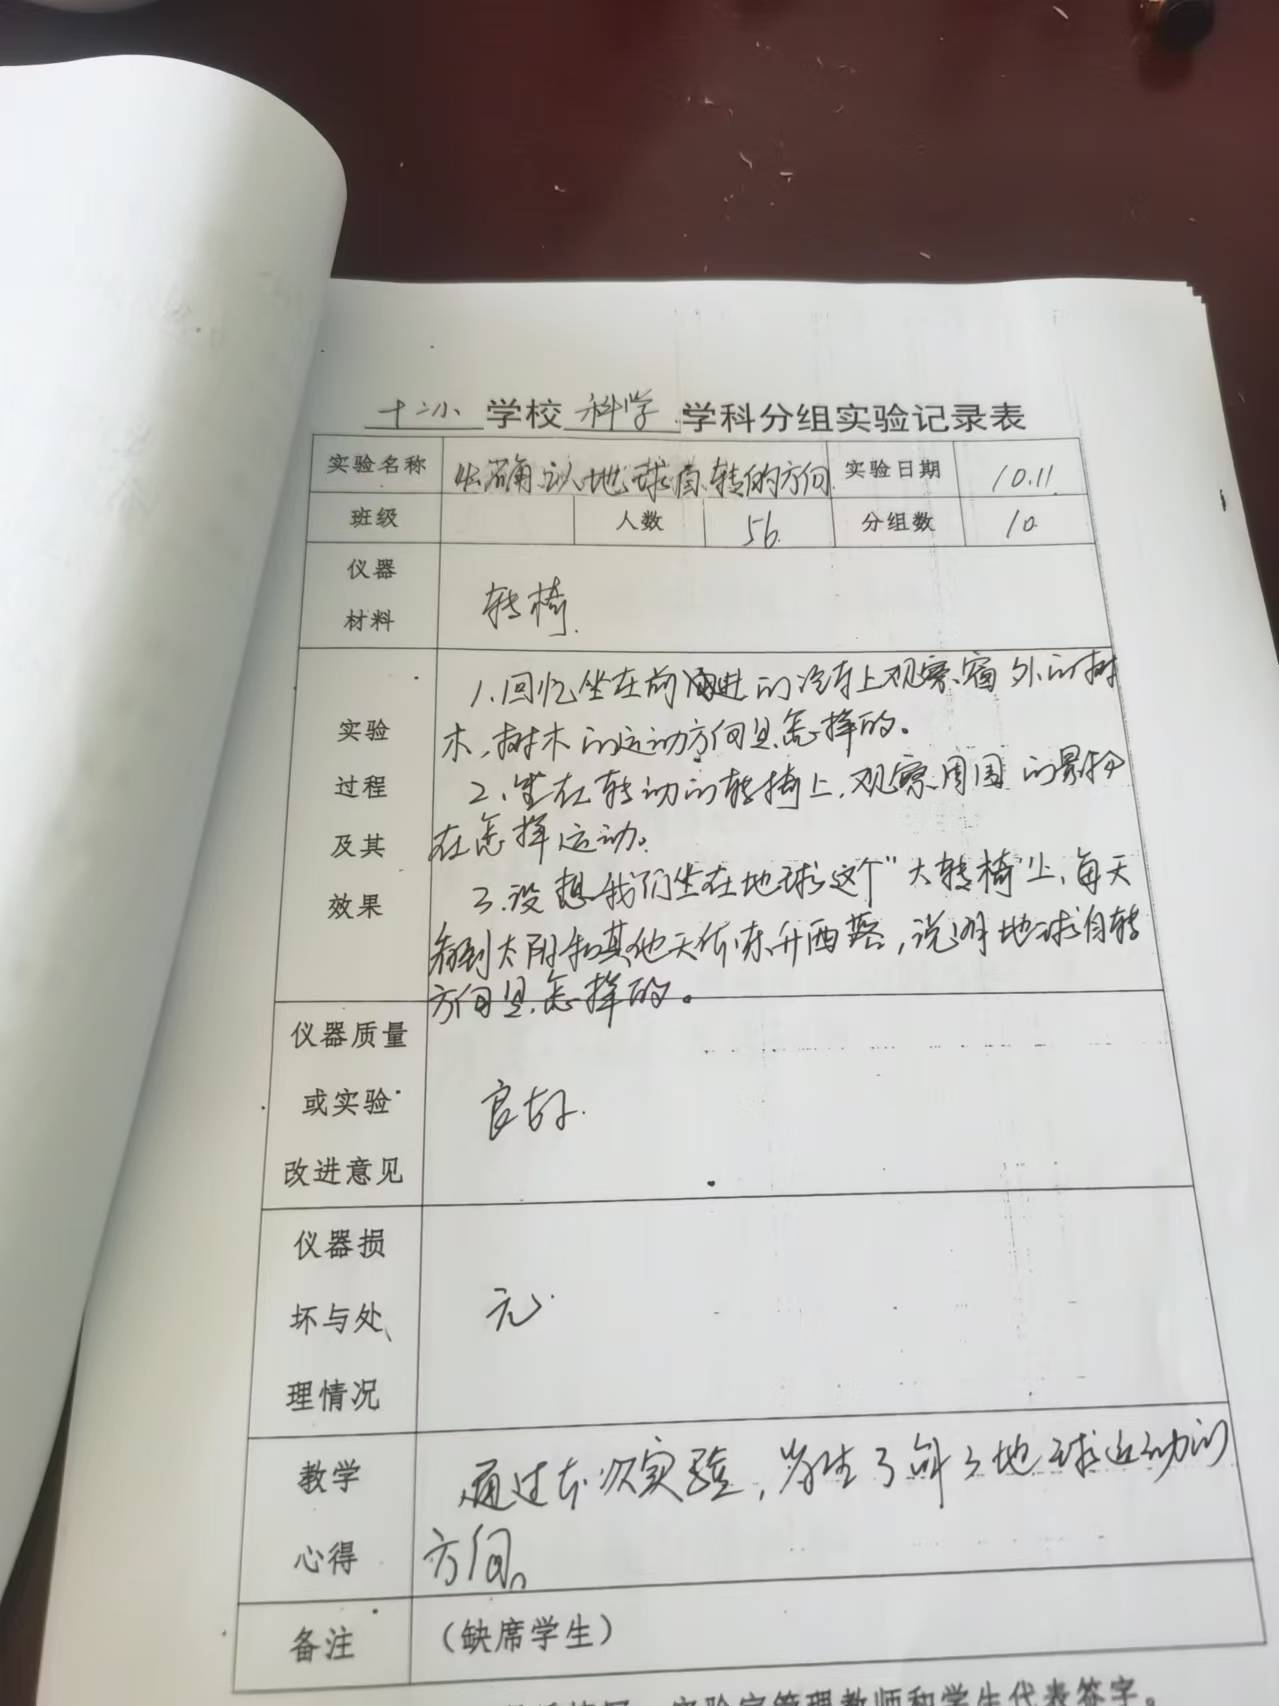 十二小学校 科学 学科分组实验记录表
实验名称 确认地球自转的方向 实验日期 10.11
班级 人数 56 分组数 10
仪器
材料
转椅
实验
过程
及其
效果
1.回忆坐在前进的汽车上观察窗外的树
木,树木的运动方向是怎样的。
2、坐在转动的转椅上,观察周围的景物
在怎样运动。
3.设想我们坐在地球这个“大转椅”上,每天
看到太阳和其他天体东升西落,说明地球自转
方向是怎样的。
仪器质量
或实验
改进意见
良好.
仪器损
坏与处
理情况
无
教学
心得
通过本次实验,学生了解了地球运动的
方向。
备注 (缺席学生)
实验室管理教师和学生代表签字。